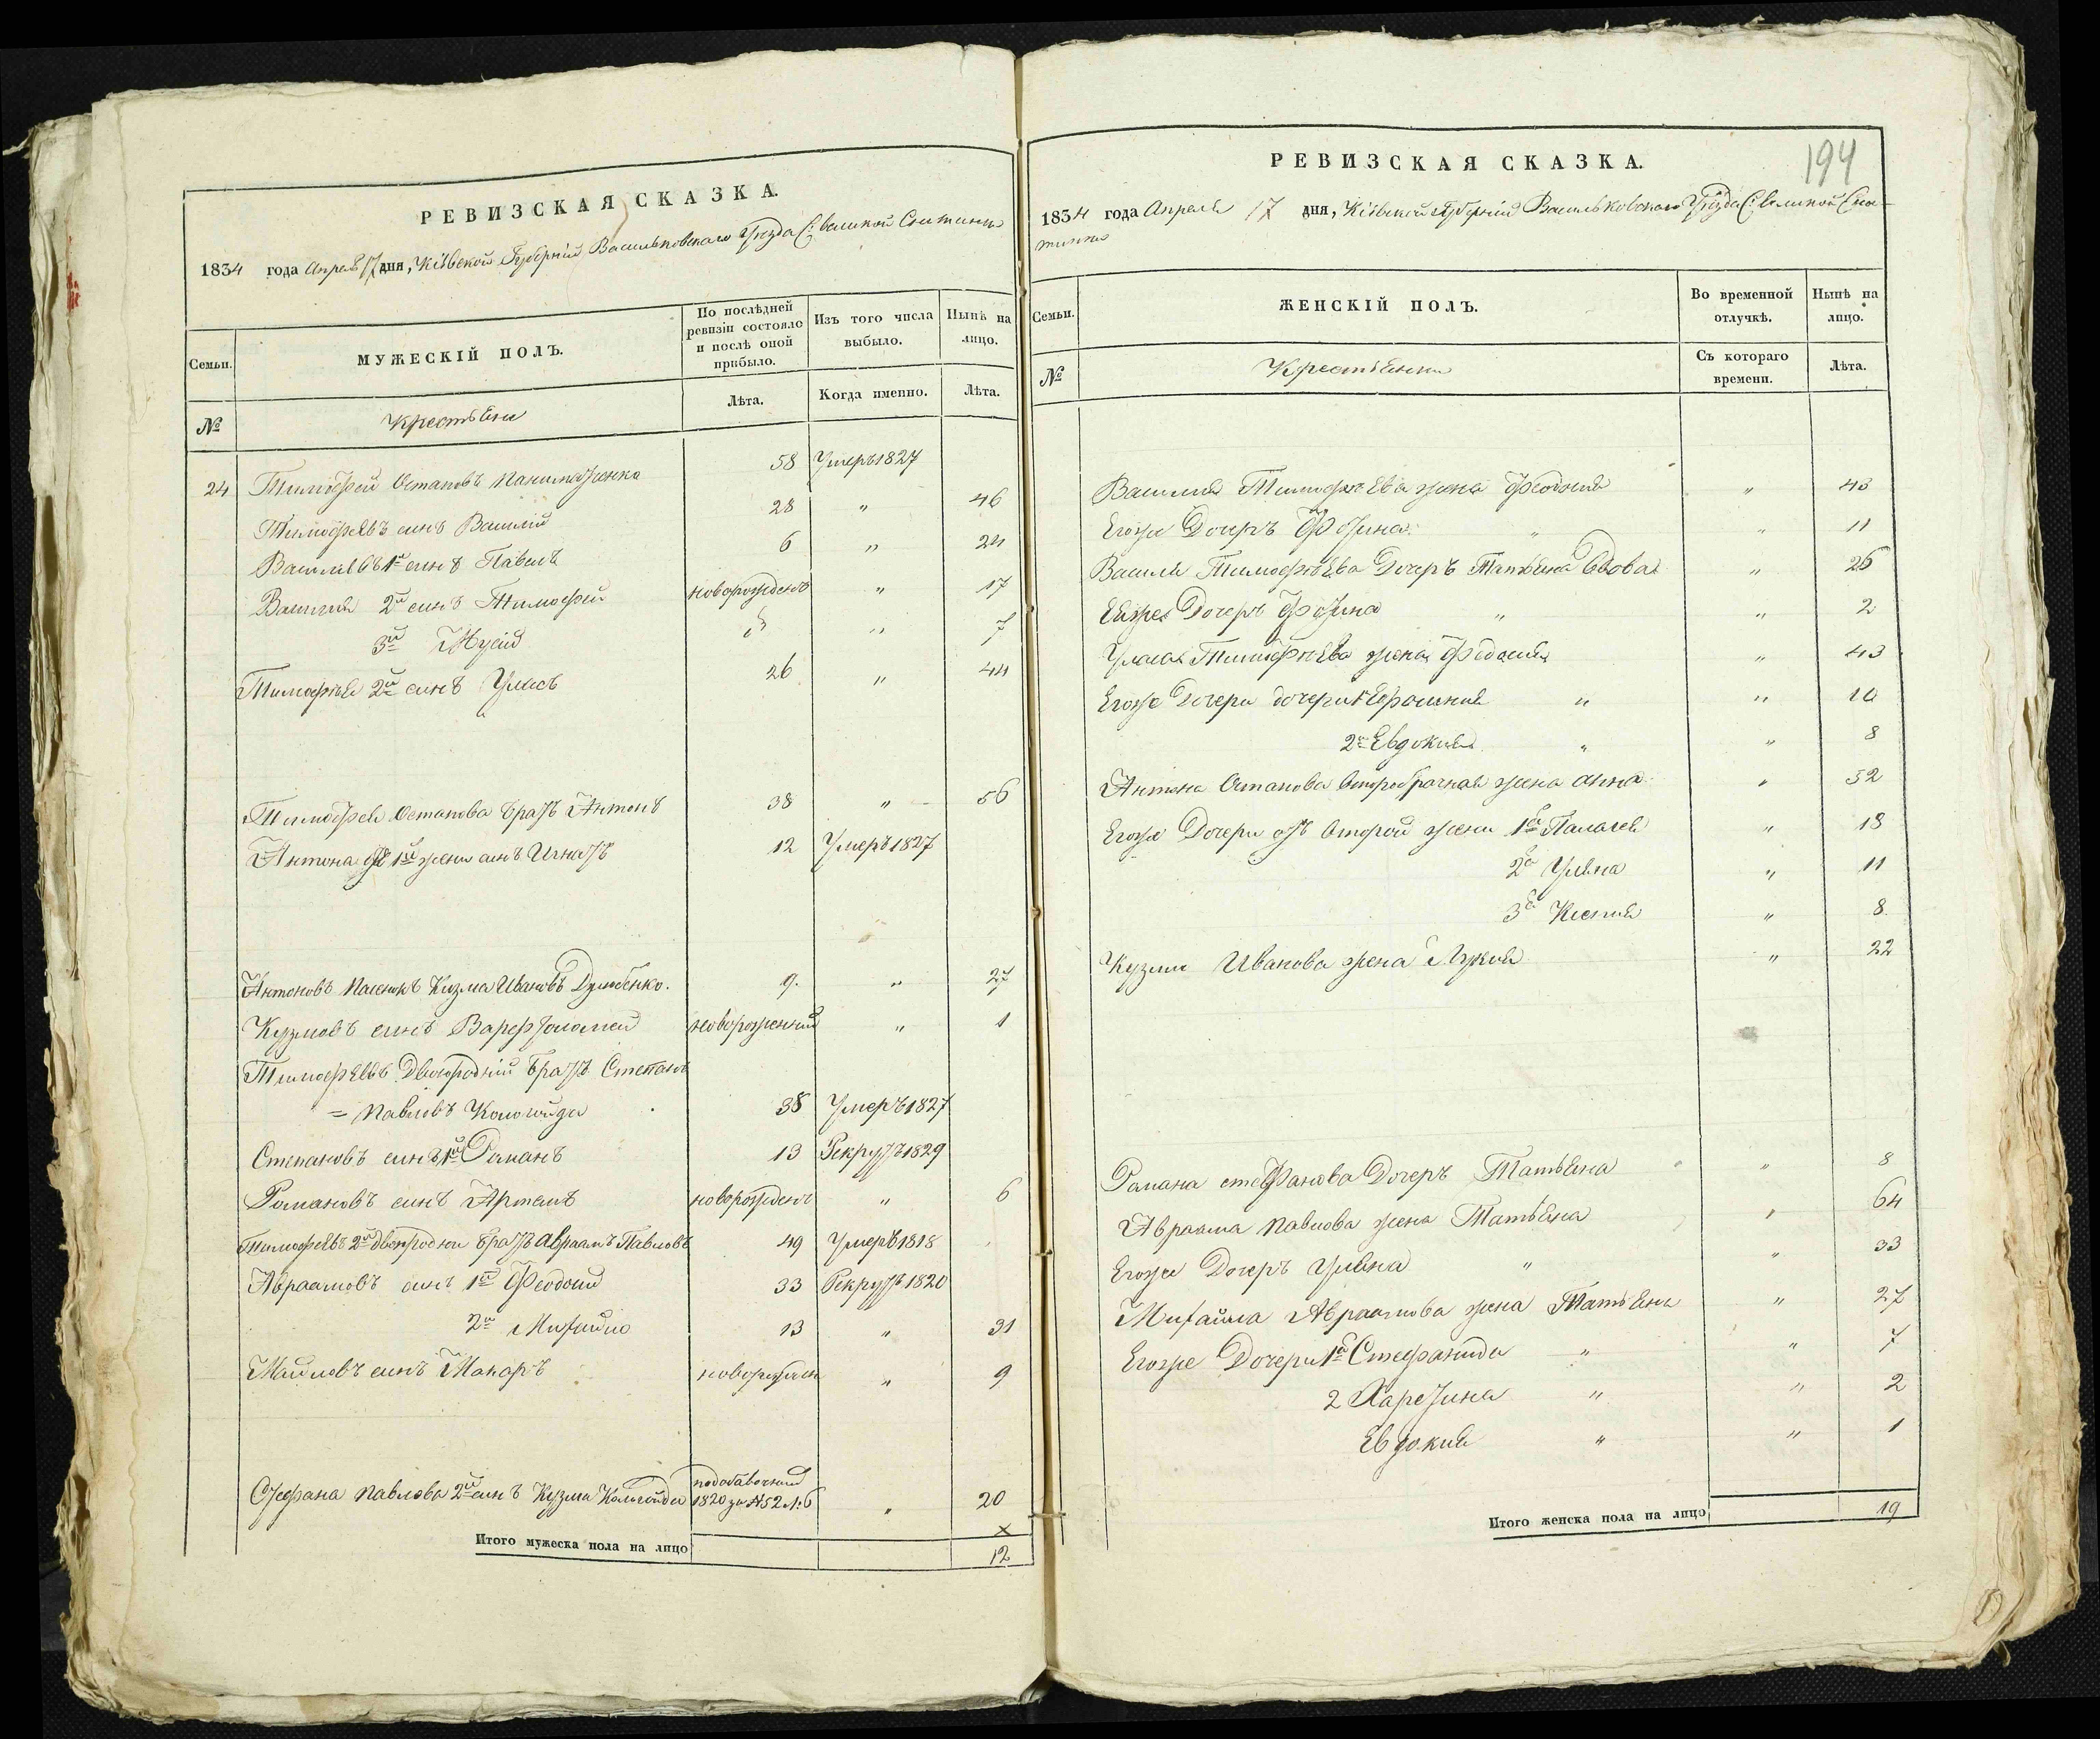 РЕВИЗСКАЯ СКАЗКА.
1834 года Апреля 17 дня, Кіевской Губерніи Васильковского Уезда С: великой Снитинки
Семьи.
МУЖЕСКІЙ ПОЛЪ.
По послѣдней ревизіи состояло и послѣ оной прибыло.
Изъ того числа выбыло.
Нынѣ на лицо.
№
Крестьяни
Лѣта.
Когда именно.
Лѣта.
24 Тимофей Остаповъ 58 Умеръ 1827
Тимофѣевъ синъ Василій 28 " 46
Василіевъ 1й синъ Павелъ 6 " 24
Василия 2й синъ Тимофей новорожденъ " 17
3й " 7
Тимофѣя 2й синъ Уласъ 26 " 44
Тимофея Остапова братъ Антонъ 38 " 56
Антона отъ 1й жени синъ Игнатъ 12 Умеръ 1827
Антоновъ пасенокъ Кузма Ивановъ 9. " 27
Кузмовъ синъ Варфоломей новорожденний " 1
Тимофѣевъ Двоюродній братъ Степанъ
= Павловъ Кологойда 38 Умеръ 1827
Степановъ синъ 1й Романъ 13 Рекрутъ 1829
Романовъ синъ Артемъ новорожденъ " 6
Тимофѣевъ 2й двоюродни братъ Авраамъ Павловъ 49 Умеръ 1818
Авраамовъ синъ 1й Феодосий 33 Рекрутъ 1820
2й Михайло 13 " 31
синъ Макаръ новорожден " 9
Стефана Павлова 2й синъ Кузма Кологойда 1820 " 20
Итого мужеска пола на лицо 12
194
РЕВИЗСКАЯ СКАЗКА.
1834 года Апреля 17 дня, Кіевской Губерніи Васильковского Уезда С: великой Сни-
тинки
Семьи.
ЖЕНСКІЙ ПОЛЪ.
Во временной отлучкѣ.
Нынѣ на лицо.
№
Крестьянки
Съ котораго времени.
Лѣта.
Василия Тимофѣева жена Феодосия " 43
Егоже Дочеръ " " 11
Василя Тимофѣева Дочеръ Татьяна вдова " 26
Дочеръ " " 2
Уласа Тимофѣева жена Феодосия " 43
Егоже Дочери " " 10
2я Евдокия " " 8
Антона Остапова второбрачная жена Анна " 52
Егоже Дочери отъ второй жени 1я Палагея " 18
2я Уляна " 11
3я Ксения " 8
Кузми Иванова жена " 22
Романа Стефанова Дочеръ Татьяна " " 8
Авраама Павлова жена Татьяна " 64
Егоже Дочеръ Уляна " " 33
Михайла Авраамова жена Татьяна " 27
Егоже Дочери 1я Стефанида " " 7
2 Харетина " " 2
Евдокия " " 1
Итого женска пола на лицо 19